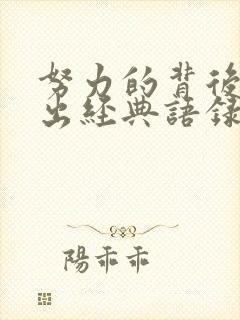 努力的背後
出經典語錄
陽乖乖